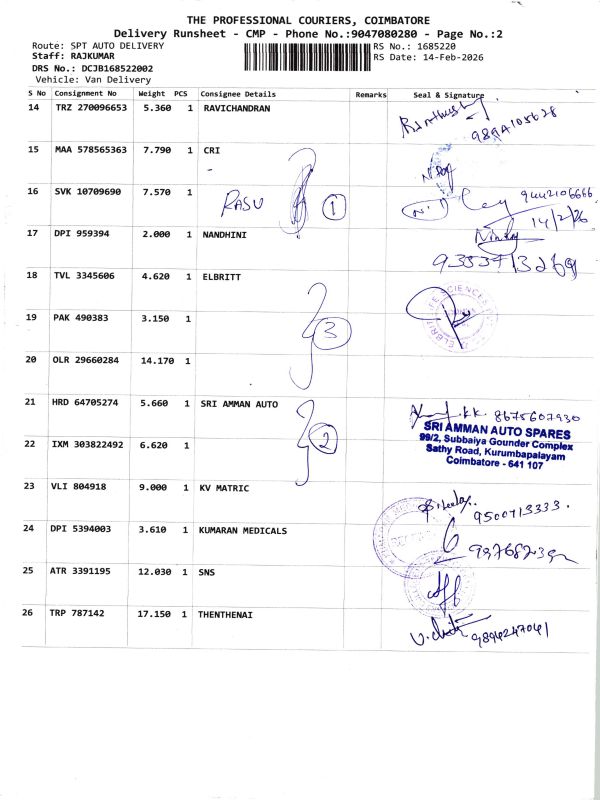 THE PROFESSIONAL COURIERS, COIMBATORE
Delivery Runsheet - CMP - Phone No.:9047080280 - Page No.:2
Route: SPT AUTO DELIVERY RS No.: 1685220
Staff: RAJKUMAR RS Date: 14-Feb-2026
DRS No.: DCJB168522002
Vehicle: Van Delivery
S No Consignment No Weight PCS Consignee Details Remarks Seal & Signature
14 TRZ 270096653 5.360 1 RAVICHANDRAN
9894105628
15 MAA 578565363 7.790 1 CRI
-
16 SVK 10709690 7.570 1 RASU 1 9442106666
14/2/26
17 DPI 959394 2.000 1 NANDHINI
18 TVL 3345606 4.620 1 ELBRITT
19 PAK 490383 3.150 1 3
20 OLR 29660284 14.170 1
21 HRD 64705274 5.660 1 SRI AMMAN AUTO 8675607930
SRI AMMAN AUTO SPARES
99/2, Subbaiya Gounder Complex
Sathy Road, Kurumbapalayam
Coimbatore - 641 107
22 IXM 303822492 6.620 1 2
23 VLI 804918 9.000 1 KV MATRIC
9500713333.
24 DPI 5394003 3.610 1 KUMARAN MEDICALS
25 ATR 3391195 12.030 1 SNS
26 TRP 787142 17.150 1 THENTHENAI
9894247041